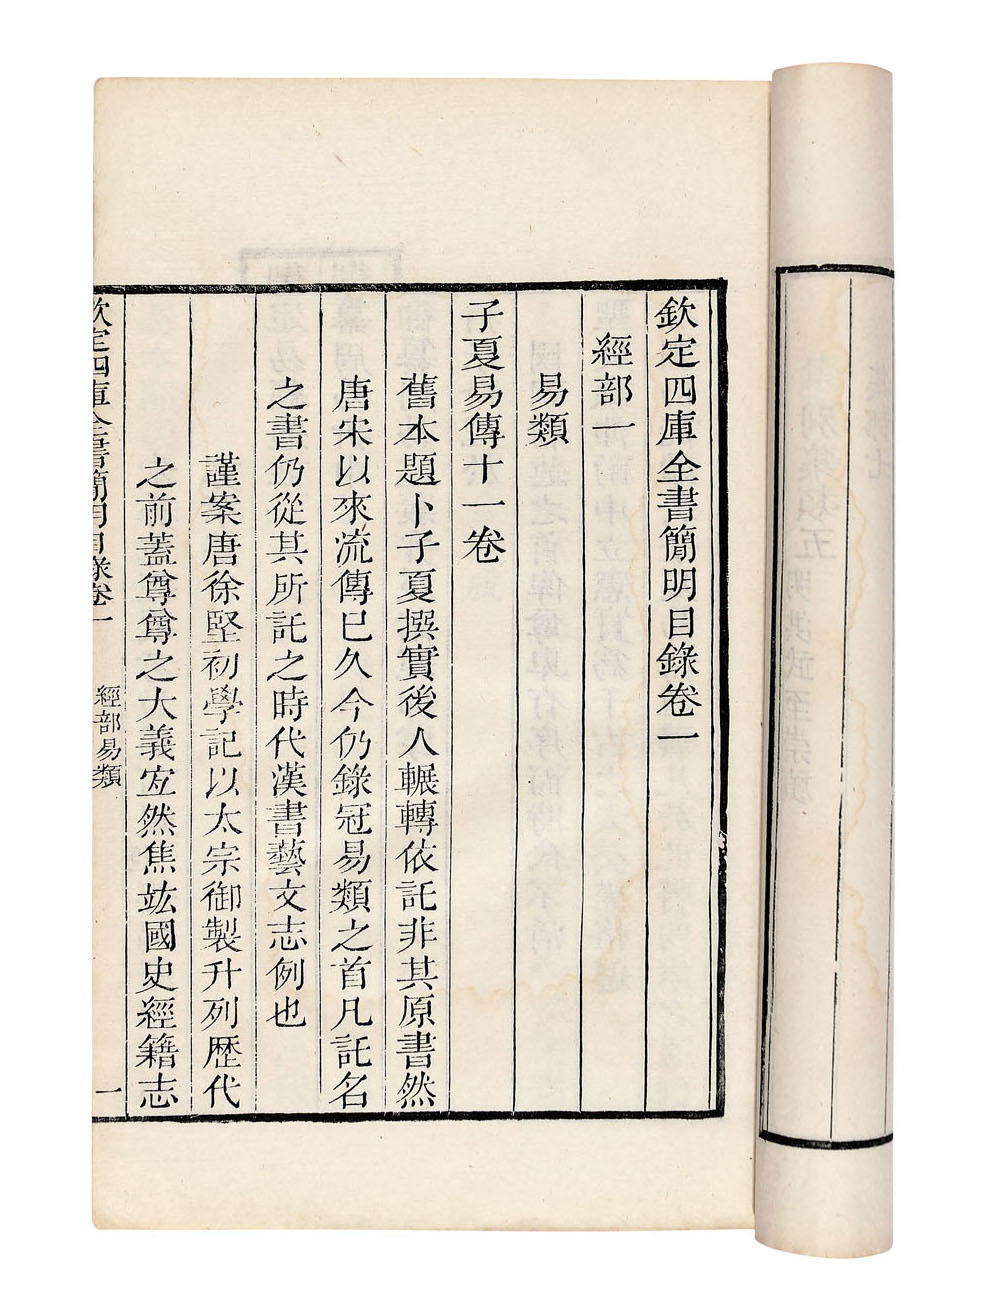 欽定四庫全書簡明目錄卷一
經部一
易類
子夏易傳十一卷
舊本題卜子夏撰實後人輾轉依託非其原書然
唐宋以來流傳已久今仍錄冠易類之首凡託名
之書仍從其所託之時代漢書藝文志例也
謹案唐徐堅初學記以太宗御製升列歷代
之前蓋尊尊之大義宐然焦竑國史經籍志
欽定四庫全書簡明目錄卷一 經部易類 一